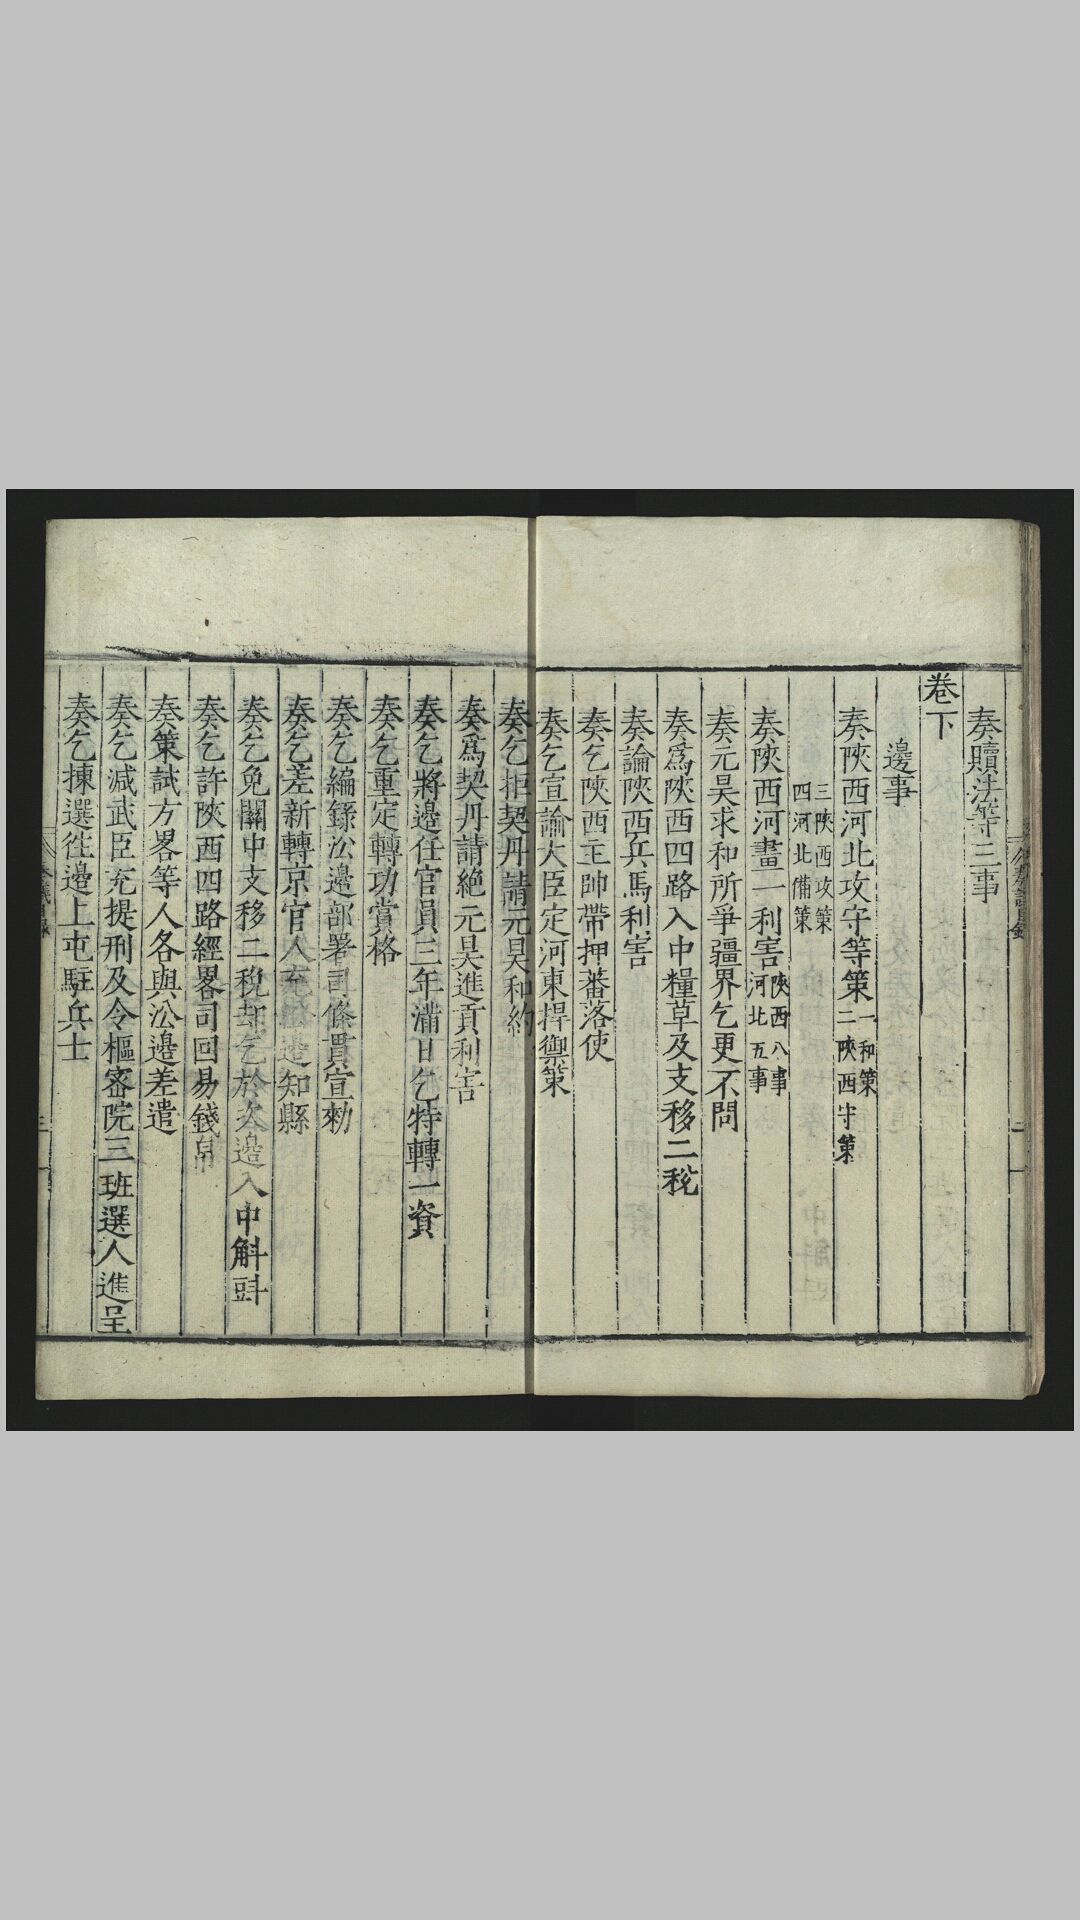 奏贖法等三事
卷下
邊事
奏陜西河北攻守等策一和策二陜西守策
三陜西攻策四河北備策
奏陜西河畫一利害陜西八事河北五事
奏元昊求和所爭疆界乞更不問
奏爲陜西四路入中糧草及支移二稅
奏論陜西兵馬利害
奏乞陜西主帥帶押蕃落使
奏乞宣諭大臣定河東捍禦策
奏乞拒契丹請元昊和約
奏爲契丹請絶元昊進貢利害
奏乞將邊任官員三年滿日乞特轉一資
奏乞重定轉功賞格
奏乞編録沿邊部署司條貫宣勑
奏乞差新轉京官人充沿邊知縣
奏乞免關中支移二稅却乞於次邊入中斛㪷
奏乞許陜西四路經畧司回易錢帛
奏策試方畧等人各與沿邊差遣
奏乞減武臣充提刑及令樞密院三班選人進呈
奏乞揀選徃邊上屯駐兵士
奏議目録
三